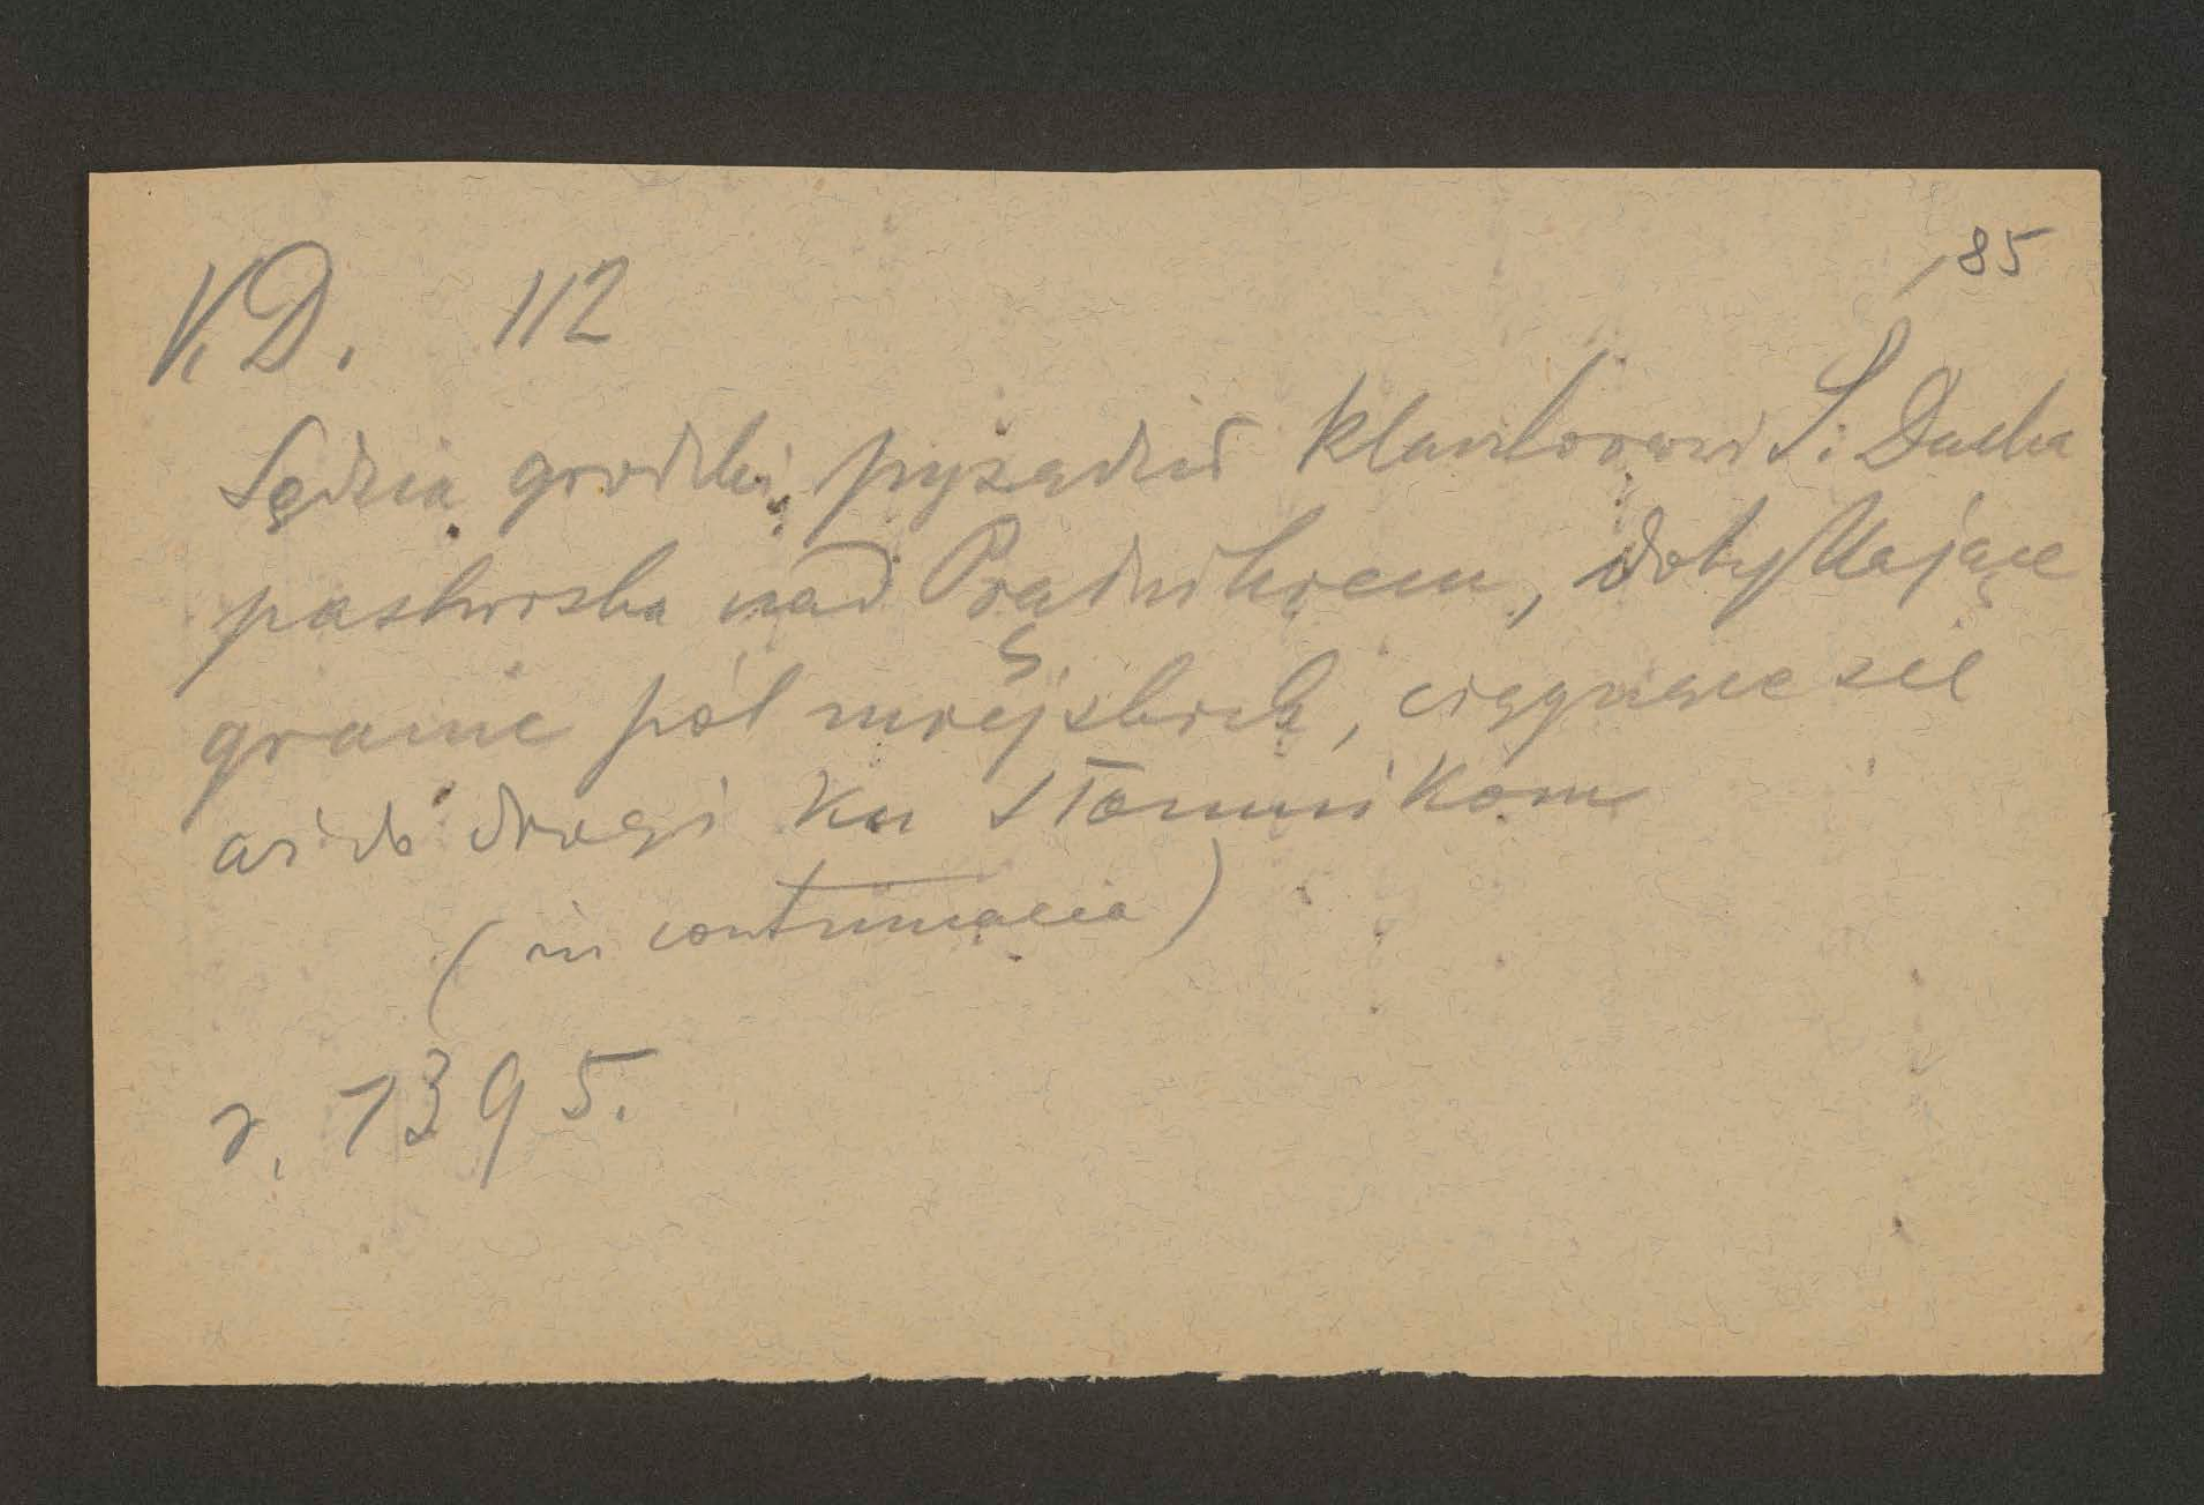 85
KD. 112
Sędzia grodzki przysądził klasztorowi Ś: Ducha
pastwiska nad Prądnikiem, dotykające
granic pól miejskich, ciągnące się
aż do drogi ku Słomnikom
(in contumacia)
r. 1395.